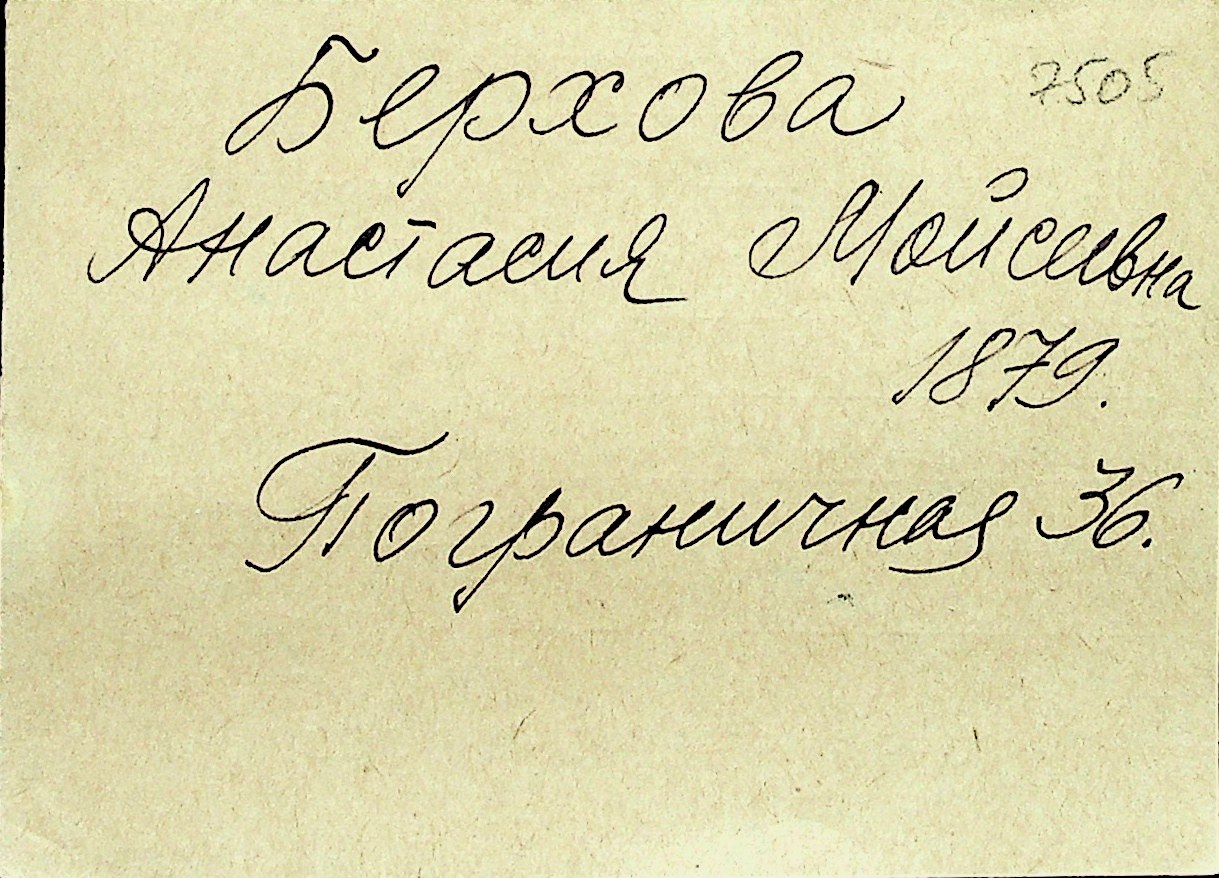 Берхова 7505
Анастасия Мойсеївна
1879.
Пограничная 36.